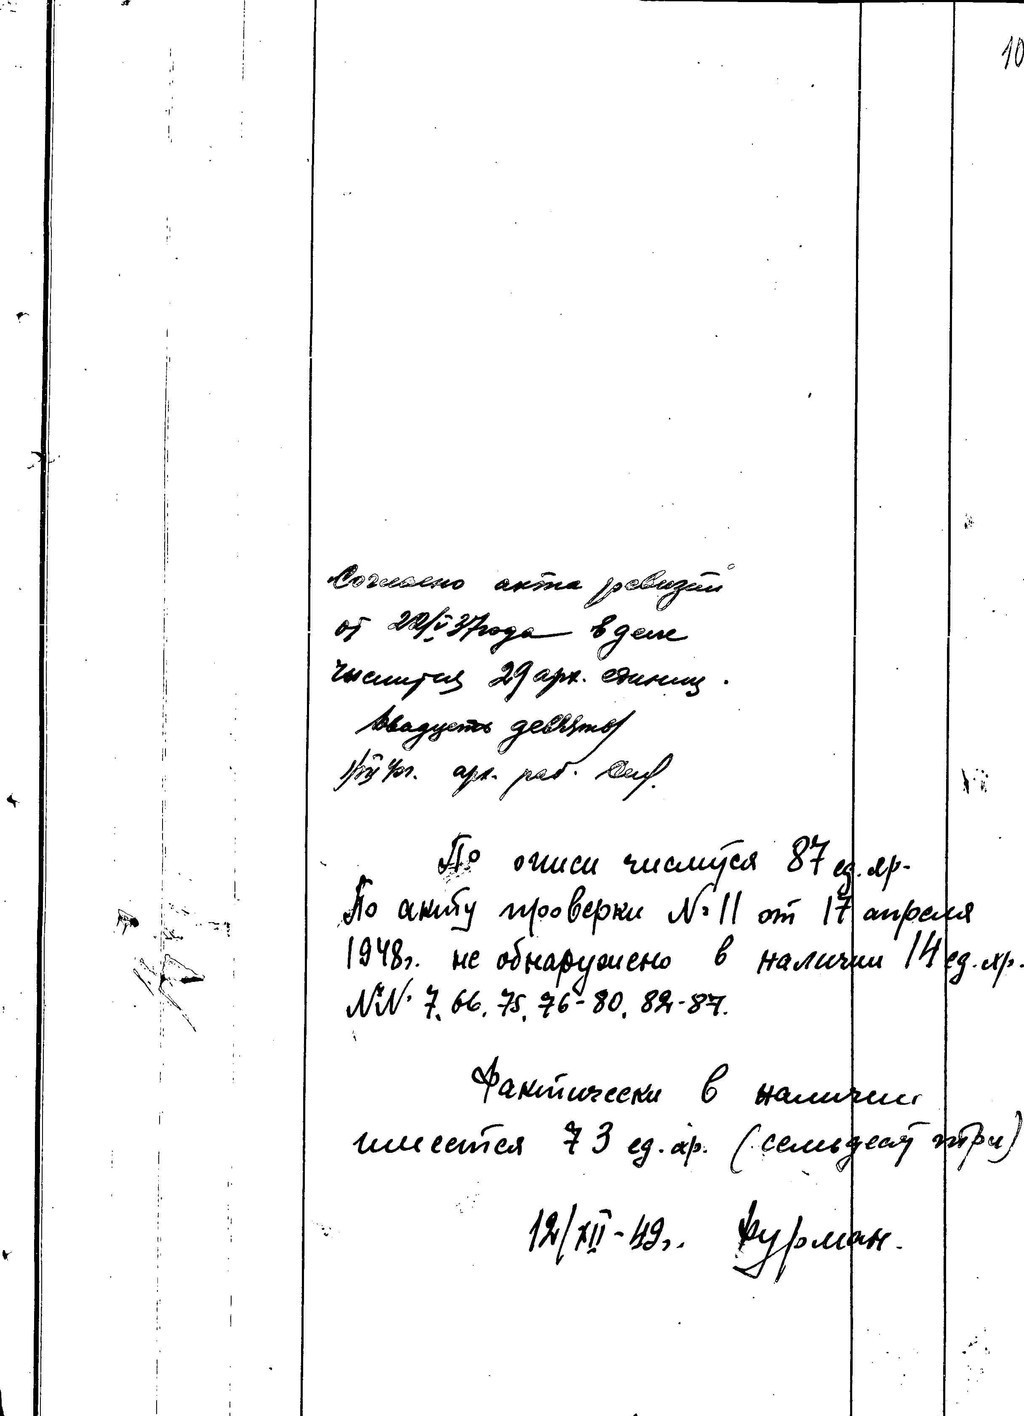 10
Согласно акта ревизии
от 22/V 37 года в деле
числится 29 арх. единиц.
двадцать девять
арх. раб.
По описи числится 87 ед.хр.
По акту проверки №11 от 17 апреля
1948г. не обнаружено в наличии 14 ед.хр.
№№ 7, 66, 75, 76-80, 82-87.
Фактически в наличии
имеется 73 ед.хр. (семьдесят три)
12/XII-49г. Фурман.